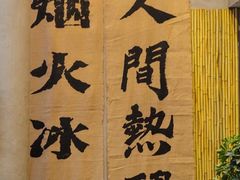 人間熱
烟火冰